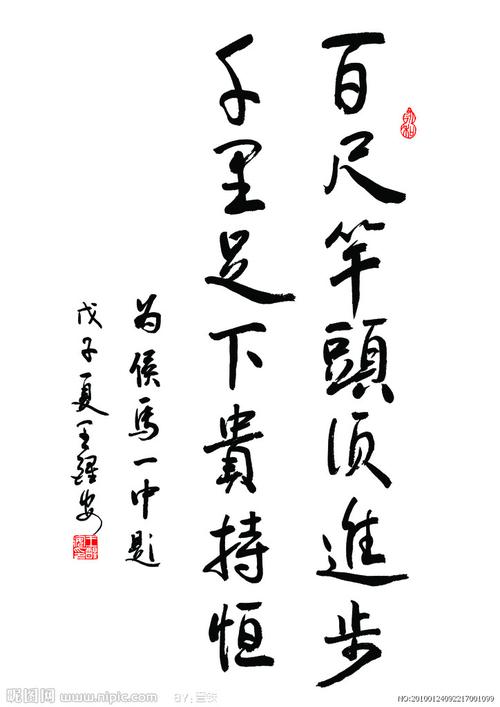 百尺竿頭须進步
千里足下貴持恒
为侯馬一中題
戊子夏王鐸安
昵图网 www.nipic.com
BY:
NO:20100124092217001099